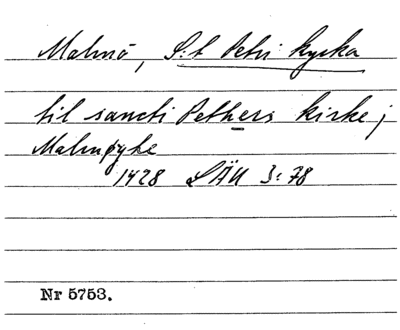 Malmö, S:t Petri kyrka
til sancti Pethers kirke j
Malmøghe
1428 LÄU 3:78
Nr 5753.